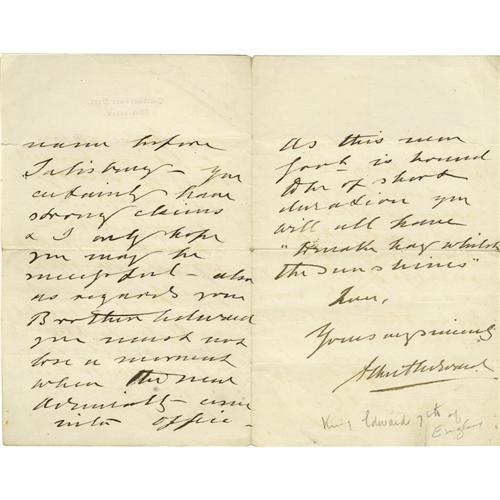 name before
Salisbury – you
certainly have
strong claims
& I only hope
you may be
successful – also
as regards your
Brother Edward
you must not
lose a moment
when the new
Admiralty come
into office –
As this new
Govt is bound
to be of short
duration you
will all have
"to make hay whilst
the sun shines"
Ever,
Yours very sincerely
Albert Edward
King Edward 7th of
England